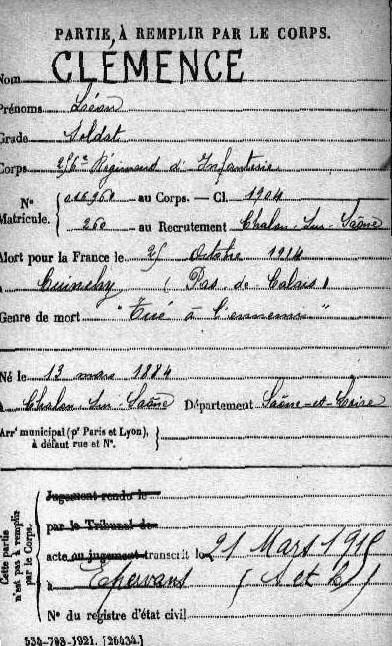 PARTIE, À REMPLIR PAR LE CORPS.
Nom CLÉMENCE
Prénoms Léon
Grade Soldat
Corps 256e Régiment d'Infanterie
N° Matricule. { 016960 au Corps. — Cl. 1904
260 au Recrutement Chalon Sur Saône
Mort pour la France le 25 Octobre 1914
à Cuinchy (Pas de Calais)
Genre de mort "Tué à l'ennemi"
Né le 13 mars 1884
à Chalon Sur Saône Département Saône-et-Loire
Arrt municipal (pr Paris et Lyon), à défaut rue et N°. }
Cette partie n'est pas à remplir par le Corps.
Jugement rendu le
par le Tribunal de
acte ou jugement transcrit le 21 Mars 1915
à Epervans (S et L)
N° du registre d'état civil
534-708-1921. [26434.]